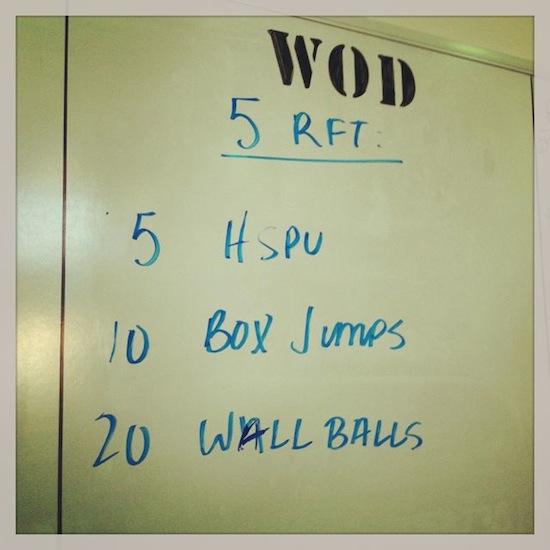 WOD
5 RFT:
5 HSPU
10 BOX JUMPS
20 WALL BALLS